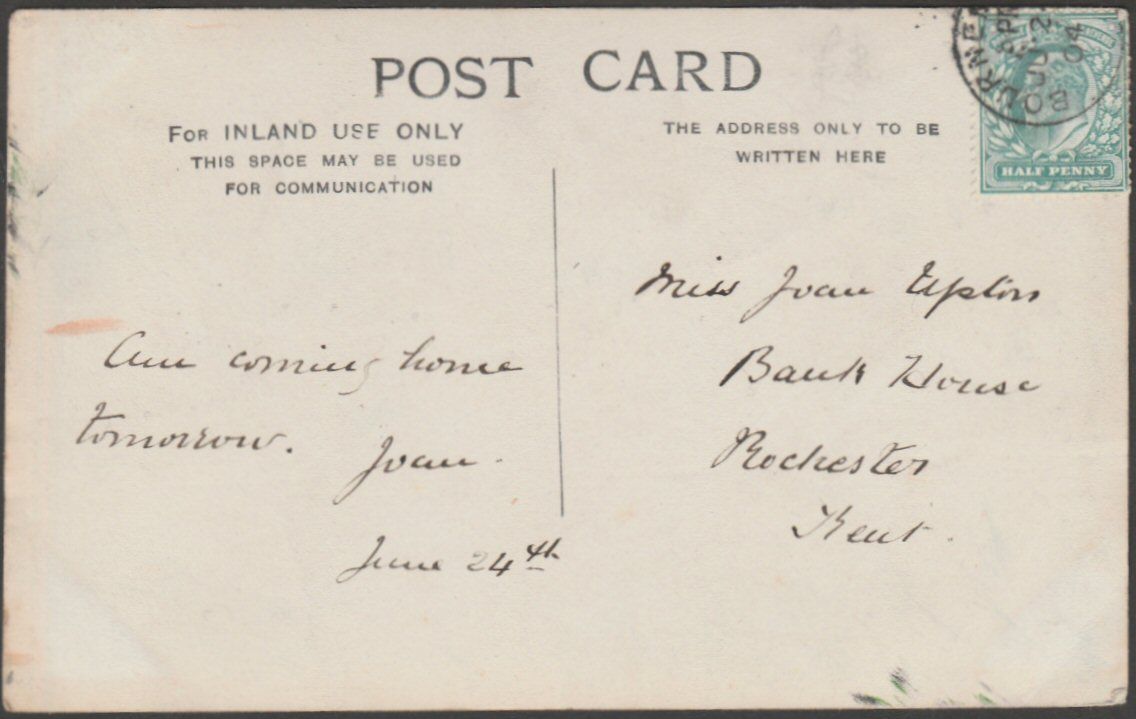 POST CARD
FOR INLAND USE ONLY
THIS SPACE MAY BE USED
FOR COMMUNICATION
THE ADDRESS ONLY TO BE
WRITTEN HERE
HALF PENNY
Am coming home
tomorrow.
Joan.
June 24th
Miss Joan Upton
Bank House
Rochester
Kent.